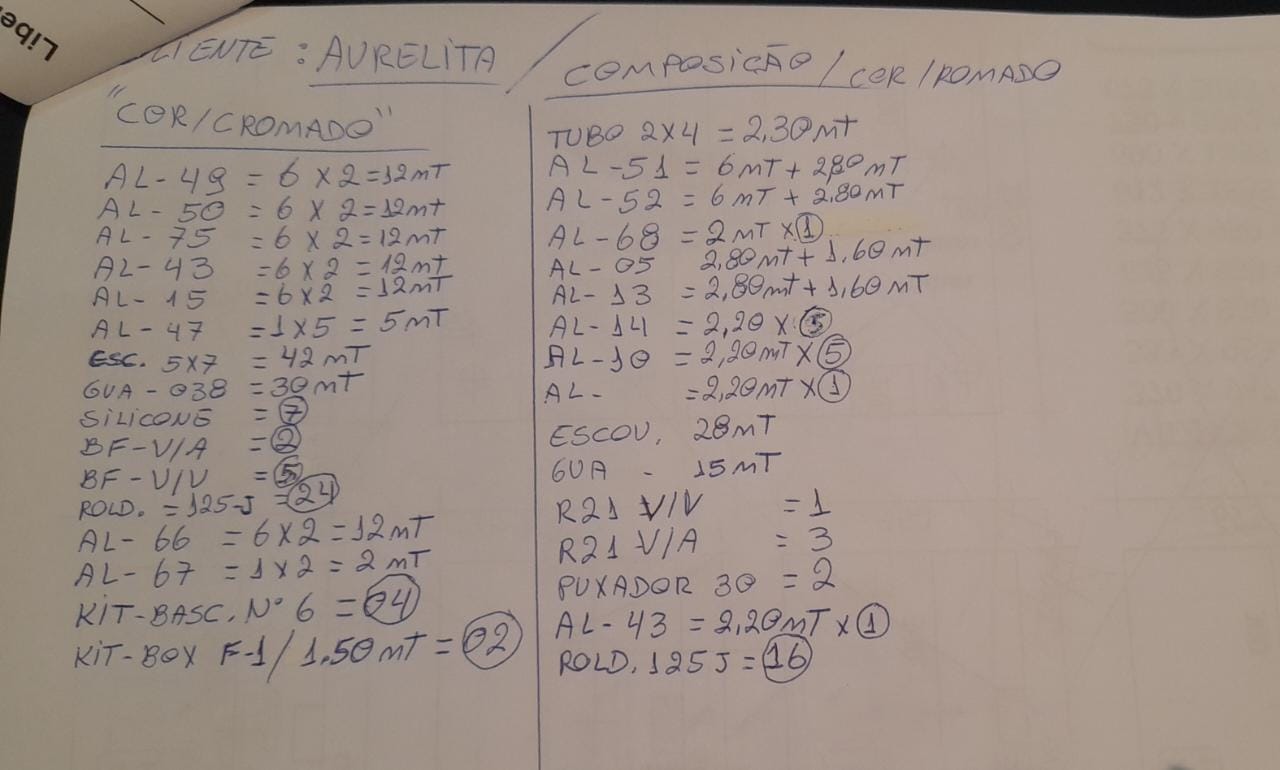 Liber
CLIENTE : AURELITA /
"COR/CROMADO"
AL-49 = 6 X 2 = 12 mT
AL-50 = 6 X 2 = 12 mt
AL-75 = 6 X 2 = 12 mT
AL-43 = 6 X 2 = 12 mT
AL-15 = 6 X 2 = 12 mT
AL-47 = 1 X 5 = 5 mT
ESC. 5X7 = 42 mT
GUA-038 = 30 mT
SILICONE = 7
BF-V/A = 2
BF-V/V = 5
ROLD. = 125-J = 24
AL-66 = 6 X 2 = 12 mT
AL-67 = 1 X 2 = 2 mT
KiT-BASC. Nº 6 = 04
KiT-BOX F-1 / 1,50 mT = 02
COMPOSIÇÃO / COR /ROMADO
TUBO 2X4 = 2,30 mT
AL-51 = 6 mT + 2,80 mT
AL-52 = 6 mT + 2.80 mT
AL-68 = 2 mT X 1
AL-05 2,80 mT + 1,60 mT
AL-13 = 2,80 mT + 1,60 mT
AL-14 = 2,20 X
AL-10 = 2,20 mT X 5
AL- = 2,20 mT X 1
ESCOV. 28 mT
GUA - 15 mT
R21 V/V = 1
R21 V/A = 3
PUXADOR 30 = 2
AL-43 = 2,20 mT X 1
ROLD. 125 J = 16